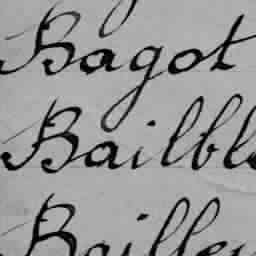 Bagot
Bailbl
Bailley